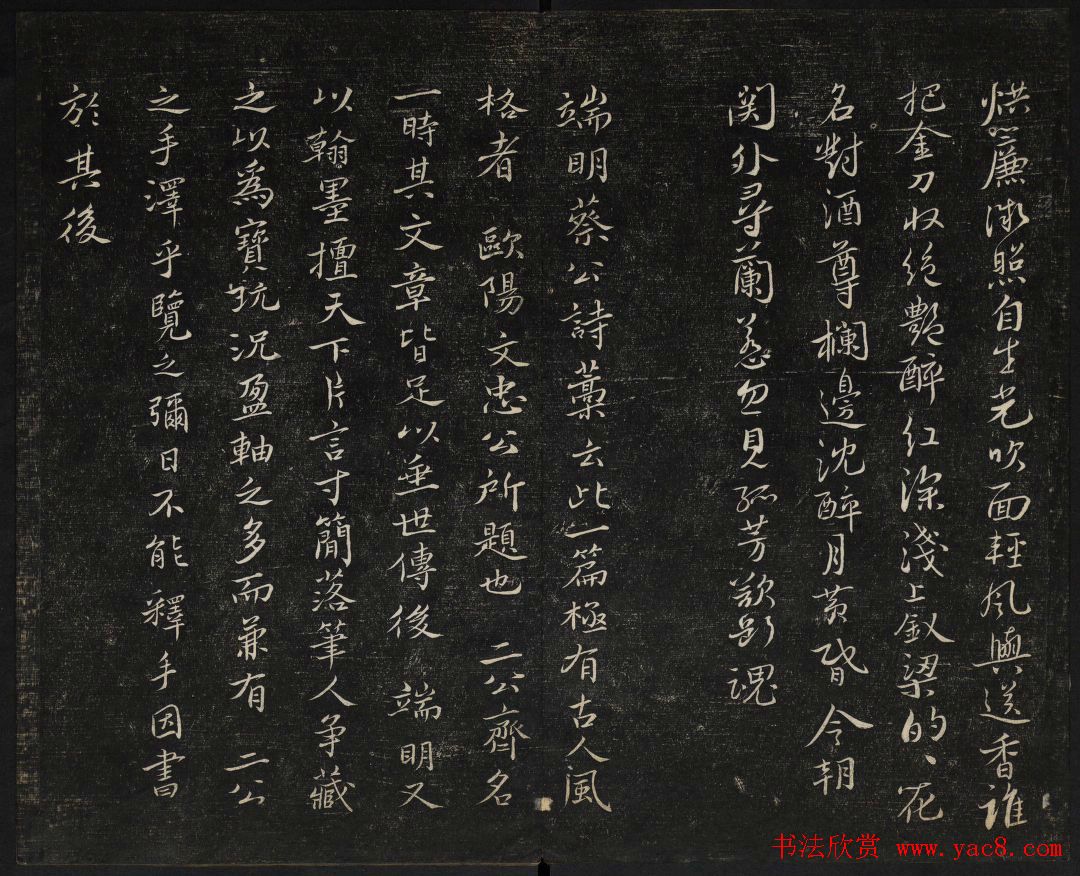 烘簾微照自生光吹面輕風與送香誰
把金刀收絕艷醉紅深淺上釵梁的、花
名對酒尊欄邊沈醉月黃昏今朝
関外尋蘭蕙勿見孤芳欲斷魂
端明蔡公詩藁云此一篇極有古人風
格者歐陽文忠公所題也二公齊名
一時其文章皆足以垂世傳後端明又
以翰墨擅天下片言寸簡落筆人爭藏
之以為寶玩況盈軸之多而兼有二公
之手澤乎覽之彌日不能釋手因書
於其後
书法欣赏 www.yac8.com